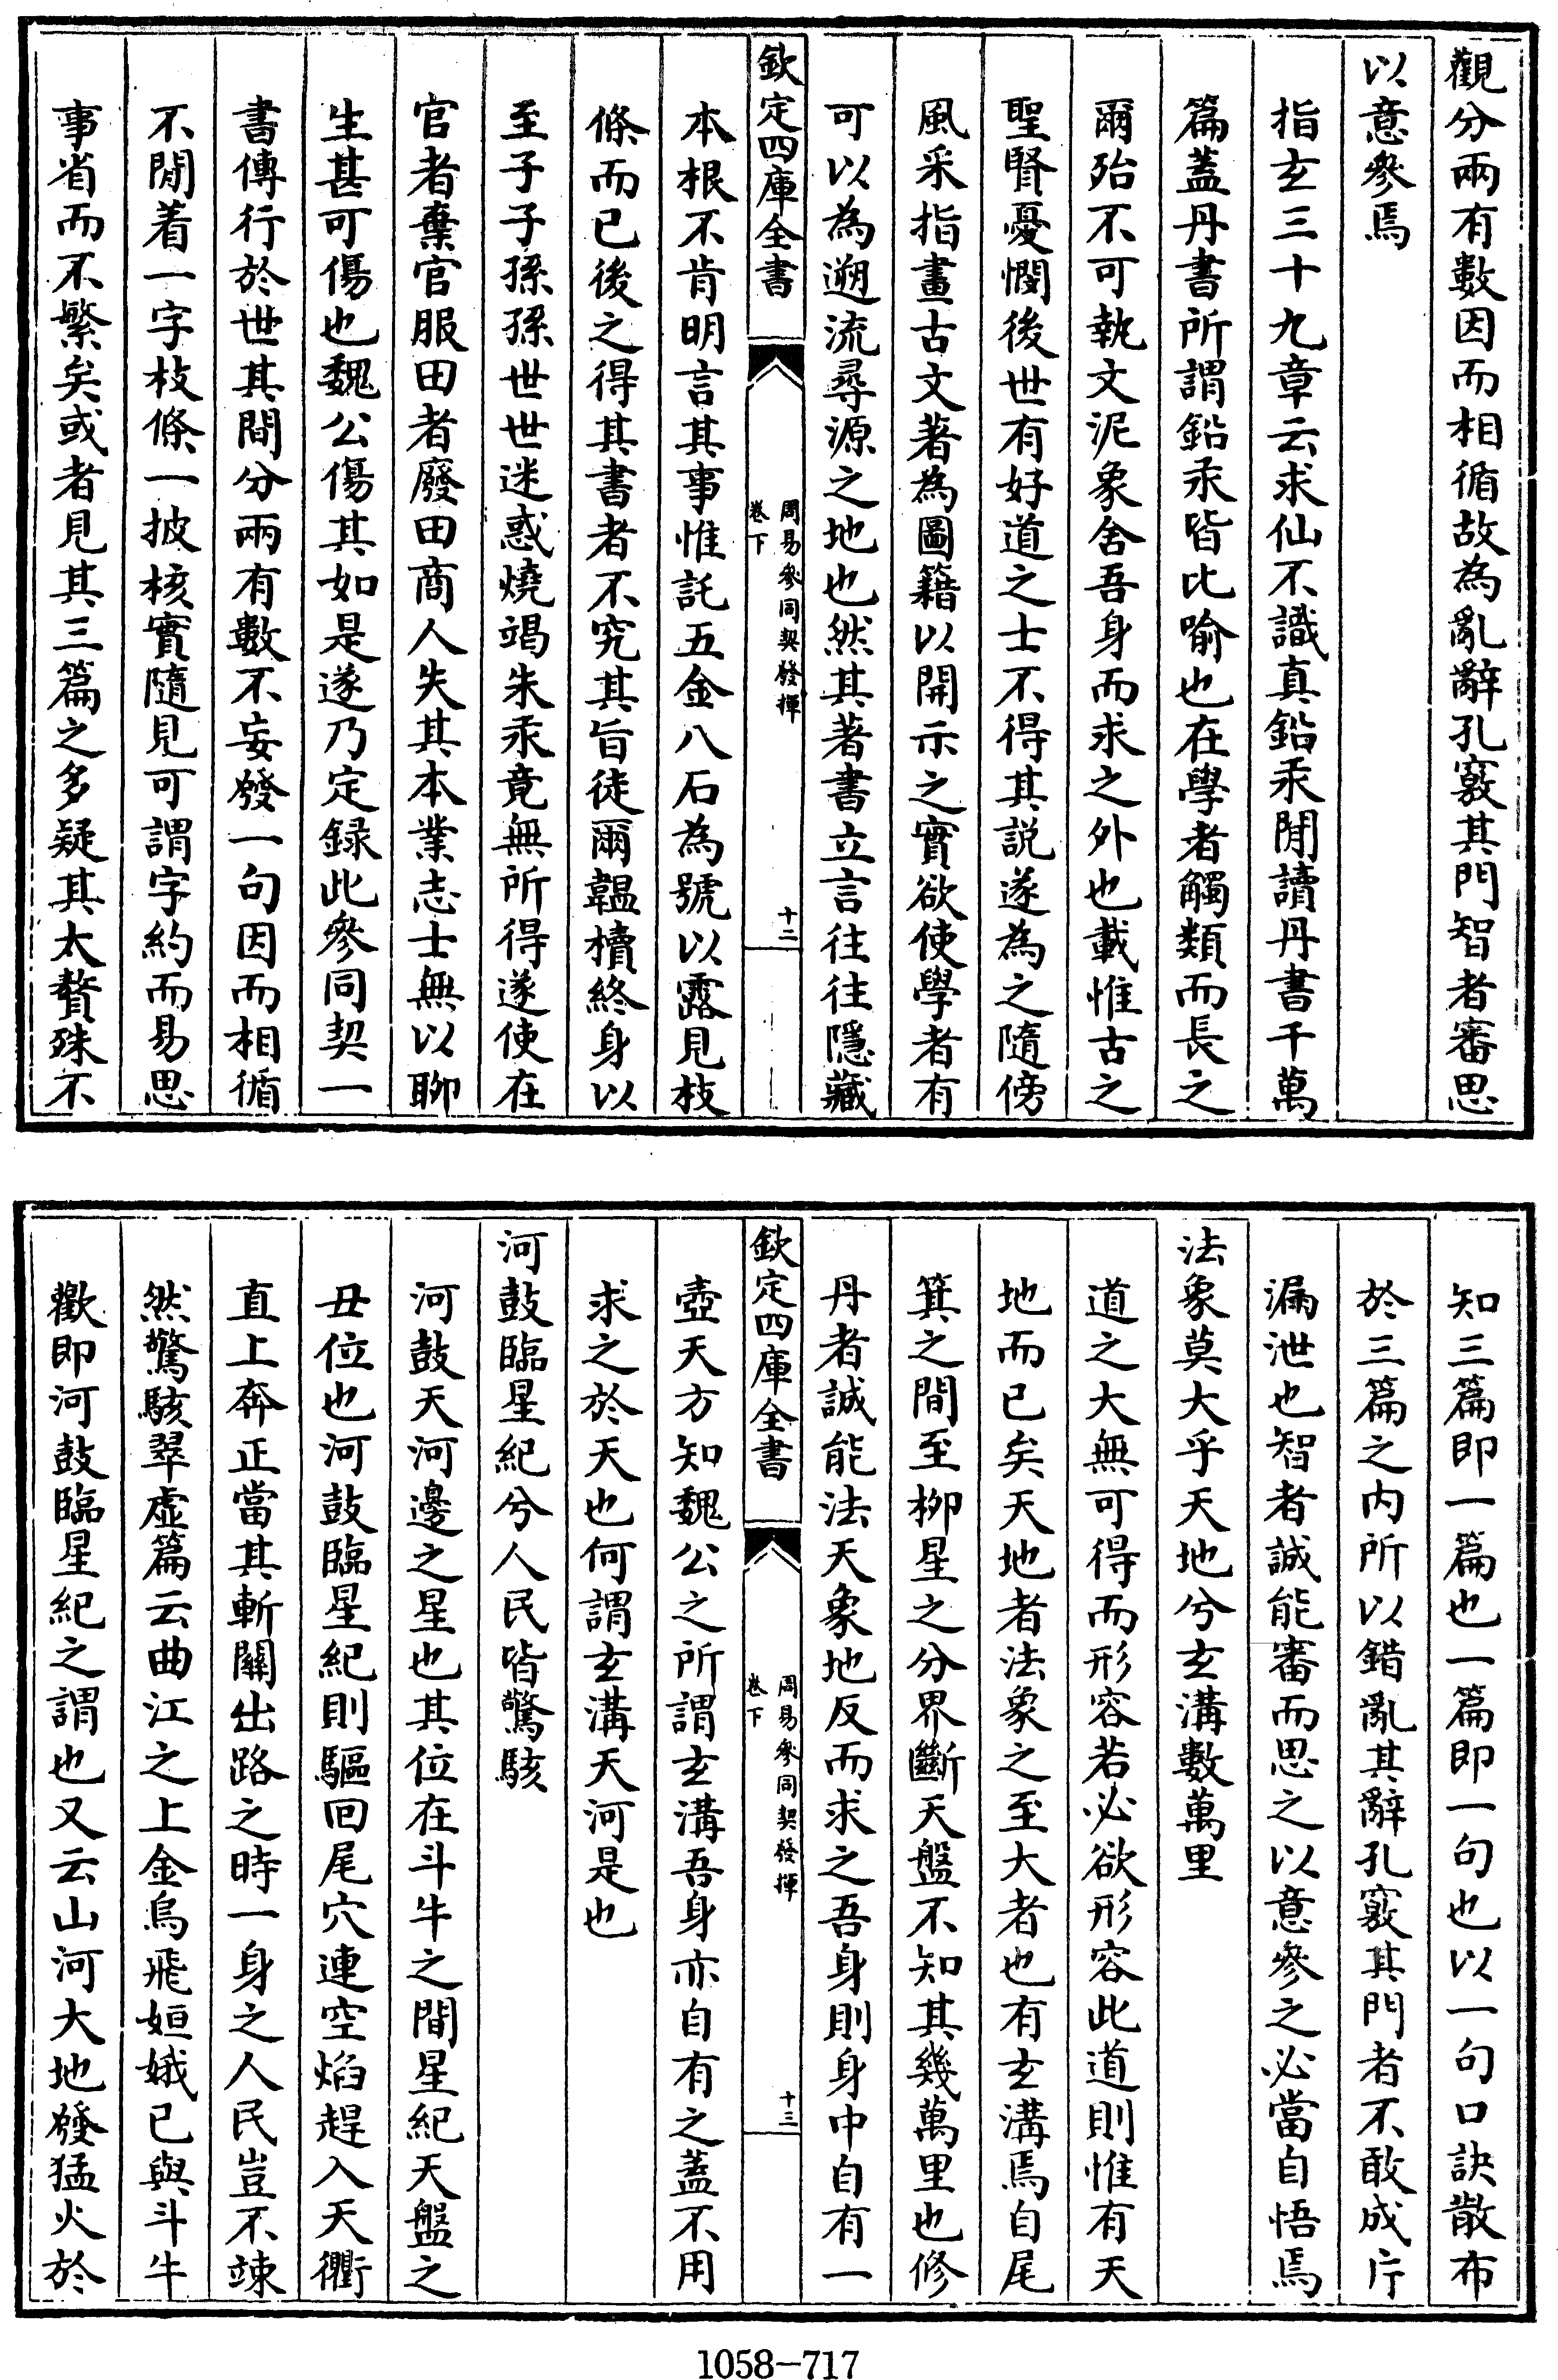 觀分兩有數因而相循故為亂辭孔竅其門智者審思
以意參焉
指玄三十九章云求仙不識真鉛汞閒讀丹書千萬
篇蓋丹書所謂鉛汞皆比喻也在學者觸類而長之
爾殆不可執文泥象舍吾身而求之外也載惟古之
聖賢憂憫後世有好道之士不得其説遂為之隨傍
風采指畫古文著為圖籍以開示之實欲使學者有
可以為遡流尋源之地也然其著書立言往往隱藏
欽定四庫全書
周易參同契發揮
卷下
十二
本根不肯明言其事惟託五金八石為號以露見枝
條而已後之得其書者不究其旨徒爾韞櫝終身以
至子子孫孫世世迷惑燒竭朱汞竟無所得遂使在
官者棄官服田者廢田商人失其本業志士無以聊
生甚可傷也魏公傷其如是遂乃定録此參同契一
書傳行於世其間分兩有數不妄發一句因而相循
不閒着一字枝條一披核實隨見可謂字約而易思
事省而不繁矣或者見其三篇之多疑其太贅殊不
知三篇即一篇也一篇即一句也以一句口訣散布
於三篇之内所以錯亂其辭孔竅其門者不敢成片
漏泄也智者誠能審而思之以意參之必當自悟焉
法象莫大乎天地兮玄溝數萬里
道之大無可得而形容若必欲形容此道則惟有天
地而已矣天地者法象之至大者也有玄溝焉自尾
箕之間至栁星之分界斷天盤不知其幾萬里也修
丹者誠能法天象地反而求之吾身則身中自有一
欽定四庫全書
周易參同契發揮
卷下
十三
壺天方知魏公之所謂玄溝吾身亦自有之蓋不用
求之於天也何謂玄溝天河是也
河鼓臨星紀兮人民皆驚駭
河鼓天河邊之星也其位在斗牛之間星紀天盤之
丑位也河鼓臨星紀則驅回尾穴連空焰趕入天衢
直上奔正當其斬關出路之時一身之人民豈不竦
然驚駭翠虛篇云曲江之上金烏飛姮娥已與斗牛
歡即河鼓臨星紀之謂也又云山河大地發猛火於
1058-717